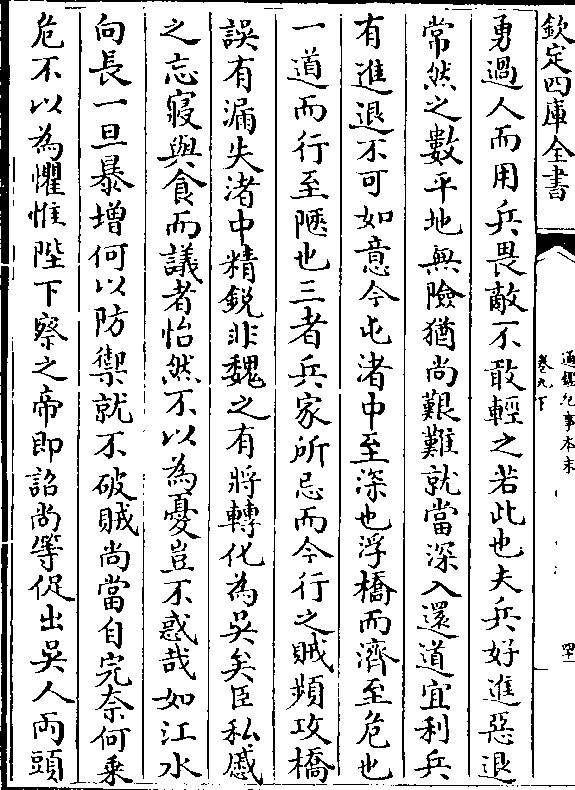 欽定四庫全書
通鑑紀事本末
卷九下
勇過人而用兵畏敵不敢輕之若此也夫兵好進惡退
常然之數平地無險猶尚艱難就當深入還道宜利兵
有進退不可如意今屯渚中至深也浮橋而濟至危也
一道而行至陿也三者兵家所忌而今行之賊頻攻橋
誤有漏失渚中精銳非魏之有將轉化為吳矣臣私慼
之忘寢與食而議者怡然不以為憂豈不惑哉如江水
向長一旦暴增何以防禦就不破賊尚當自完奈何乘
危不以為懼惟陛下察之帝即詔尚等促出吳人兩頭